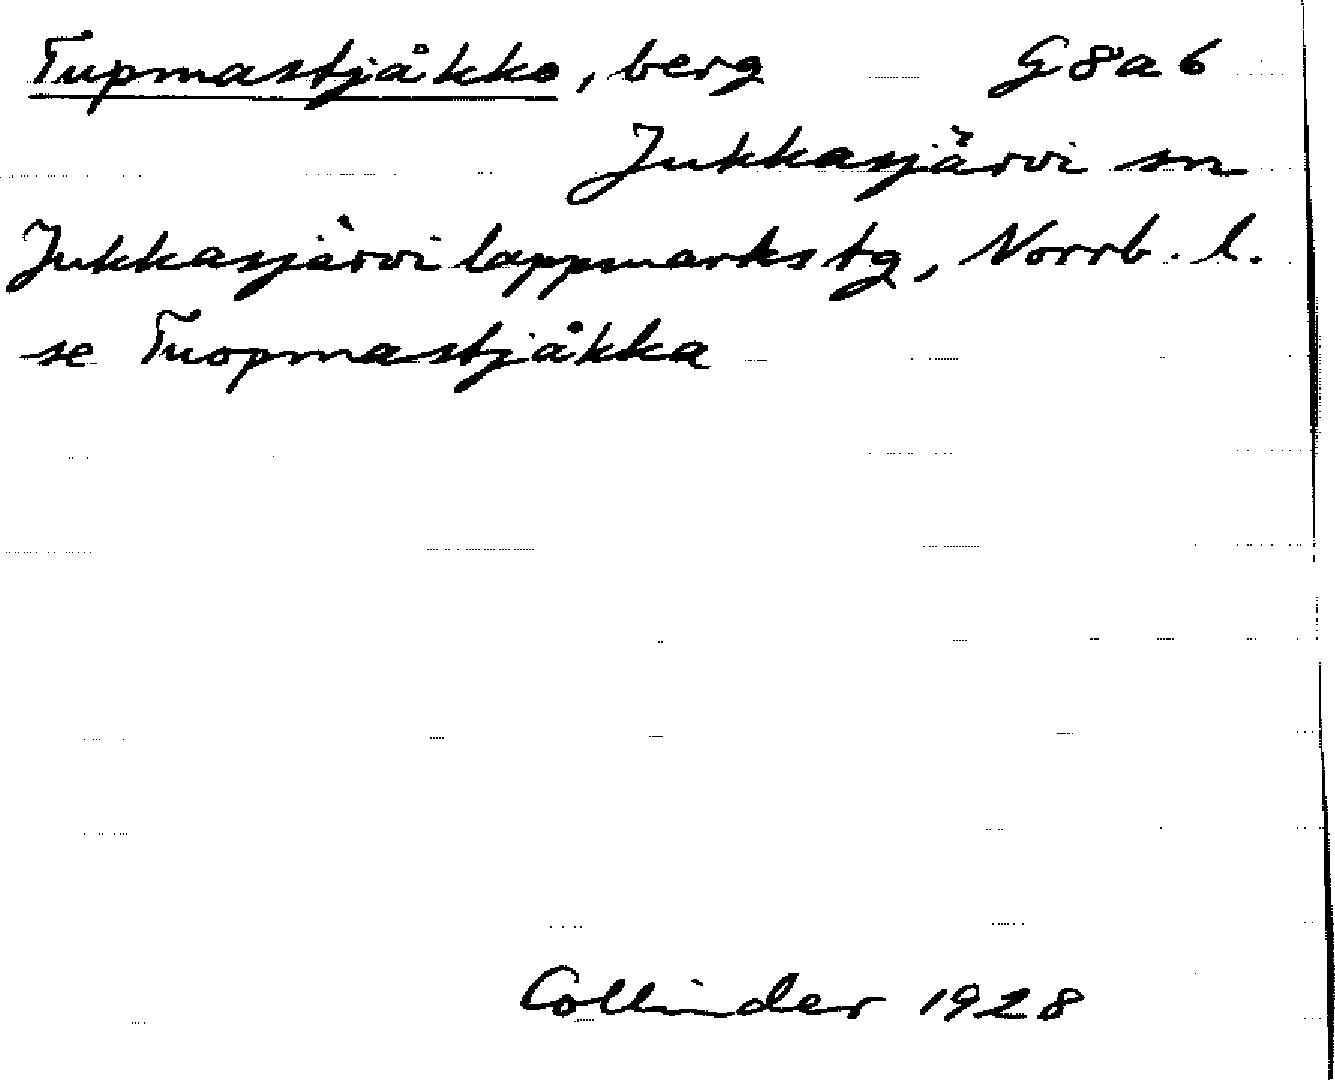 Tupmastjåkko, berg G8a6
Jukkasjärvi sn
Jukkasjärvi lappmarkstg, Norrb. l.
se Tuopmastjåkka
Collinder 1928